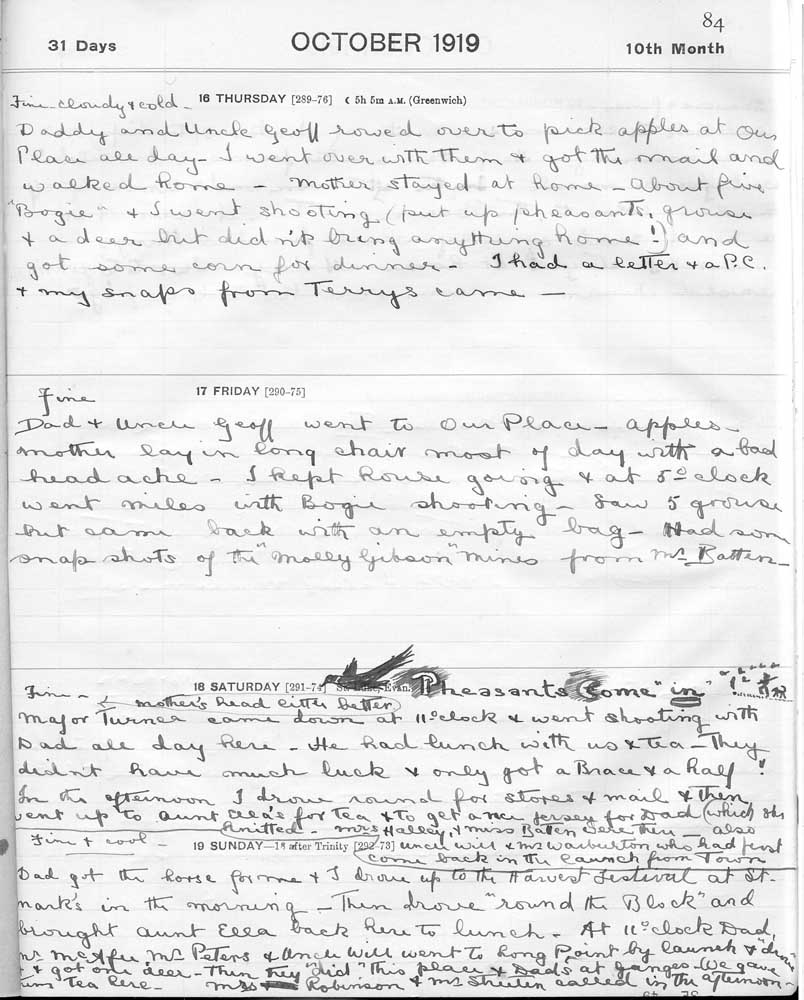 84
31 Days
OCTOBER 1919
10th Month
Fine - cloudy & cold - 16 THURSDAY [289-76] ☾ 5h 5m A.M. (Greenwich)
Daddy and Uncle Geoff rowed over to pick apples at Our
Place all day - I went over with them & got the mail and
walked home - Mother stayed at home - About five
"Bogie" & I went shooting (put up pheasants, grouse
& a deer but didn't bring anything home!) and
got some corn for dinner - I had a letter & a P.C.
& my snaps from Terrys came -
Fine
17 FRIDAY [290-75]
Dad & Uncle Geoff went to Our Place - apples -
Mother lay in long chair most of day with a bad
head ache - I kept house going & at 5 o'clock
went miles with Bogie shooting - Saw 5 grouse
but came back with an empty bag - Had som
snap shots of the "Molly Gibson" Mines from Mr. Batten -
Fine - 18 SATURDAY [291-74] St. Luke, Evan. Pheasants Come "in" !
mother's head little better
Major Turner came down at 11 o'clock & went shooting with
Dad all day here - He had lunch with us & tea - They
didn't have much luck & only got a Brace & a half !
In the afternoon I drove round for stores & mail & then
went up to Aunt Ella's for tea & to get a new jersey for Dad (which she
knitted - Mrs Halley, & Miss Baten were there - also
Fine & cool - 19 SUNDAY—18 after Trinity [292-73] Uncle Will & Mr Warburton who had just
come back in the launch from Town
Dad got the horse for me & I drove up to the Harvest Festival at St.
Mark's in the morning - Then drove "round the Block" and
brought Aunt Ella back here to lunch. At 11 o'clock Dad,
Mr McAfee, Mr Peters & Uncle Will went to Long Point by launch & "drove"
& got one deer - then they "did" this place & Dad's at Ganges - We gave
them tea here - Mrs Robinson & Mr called in the afternoon -